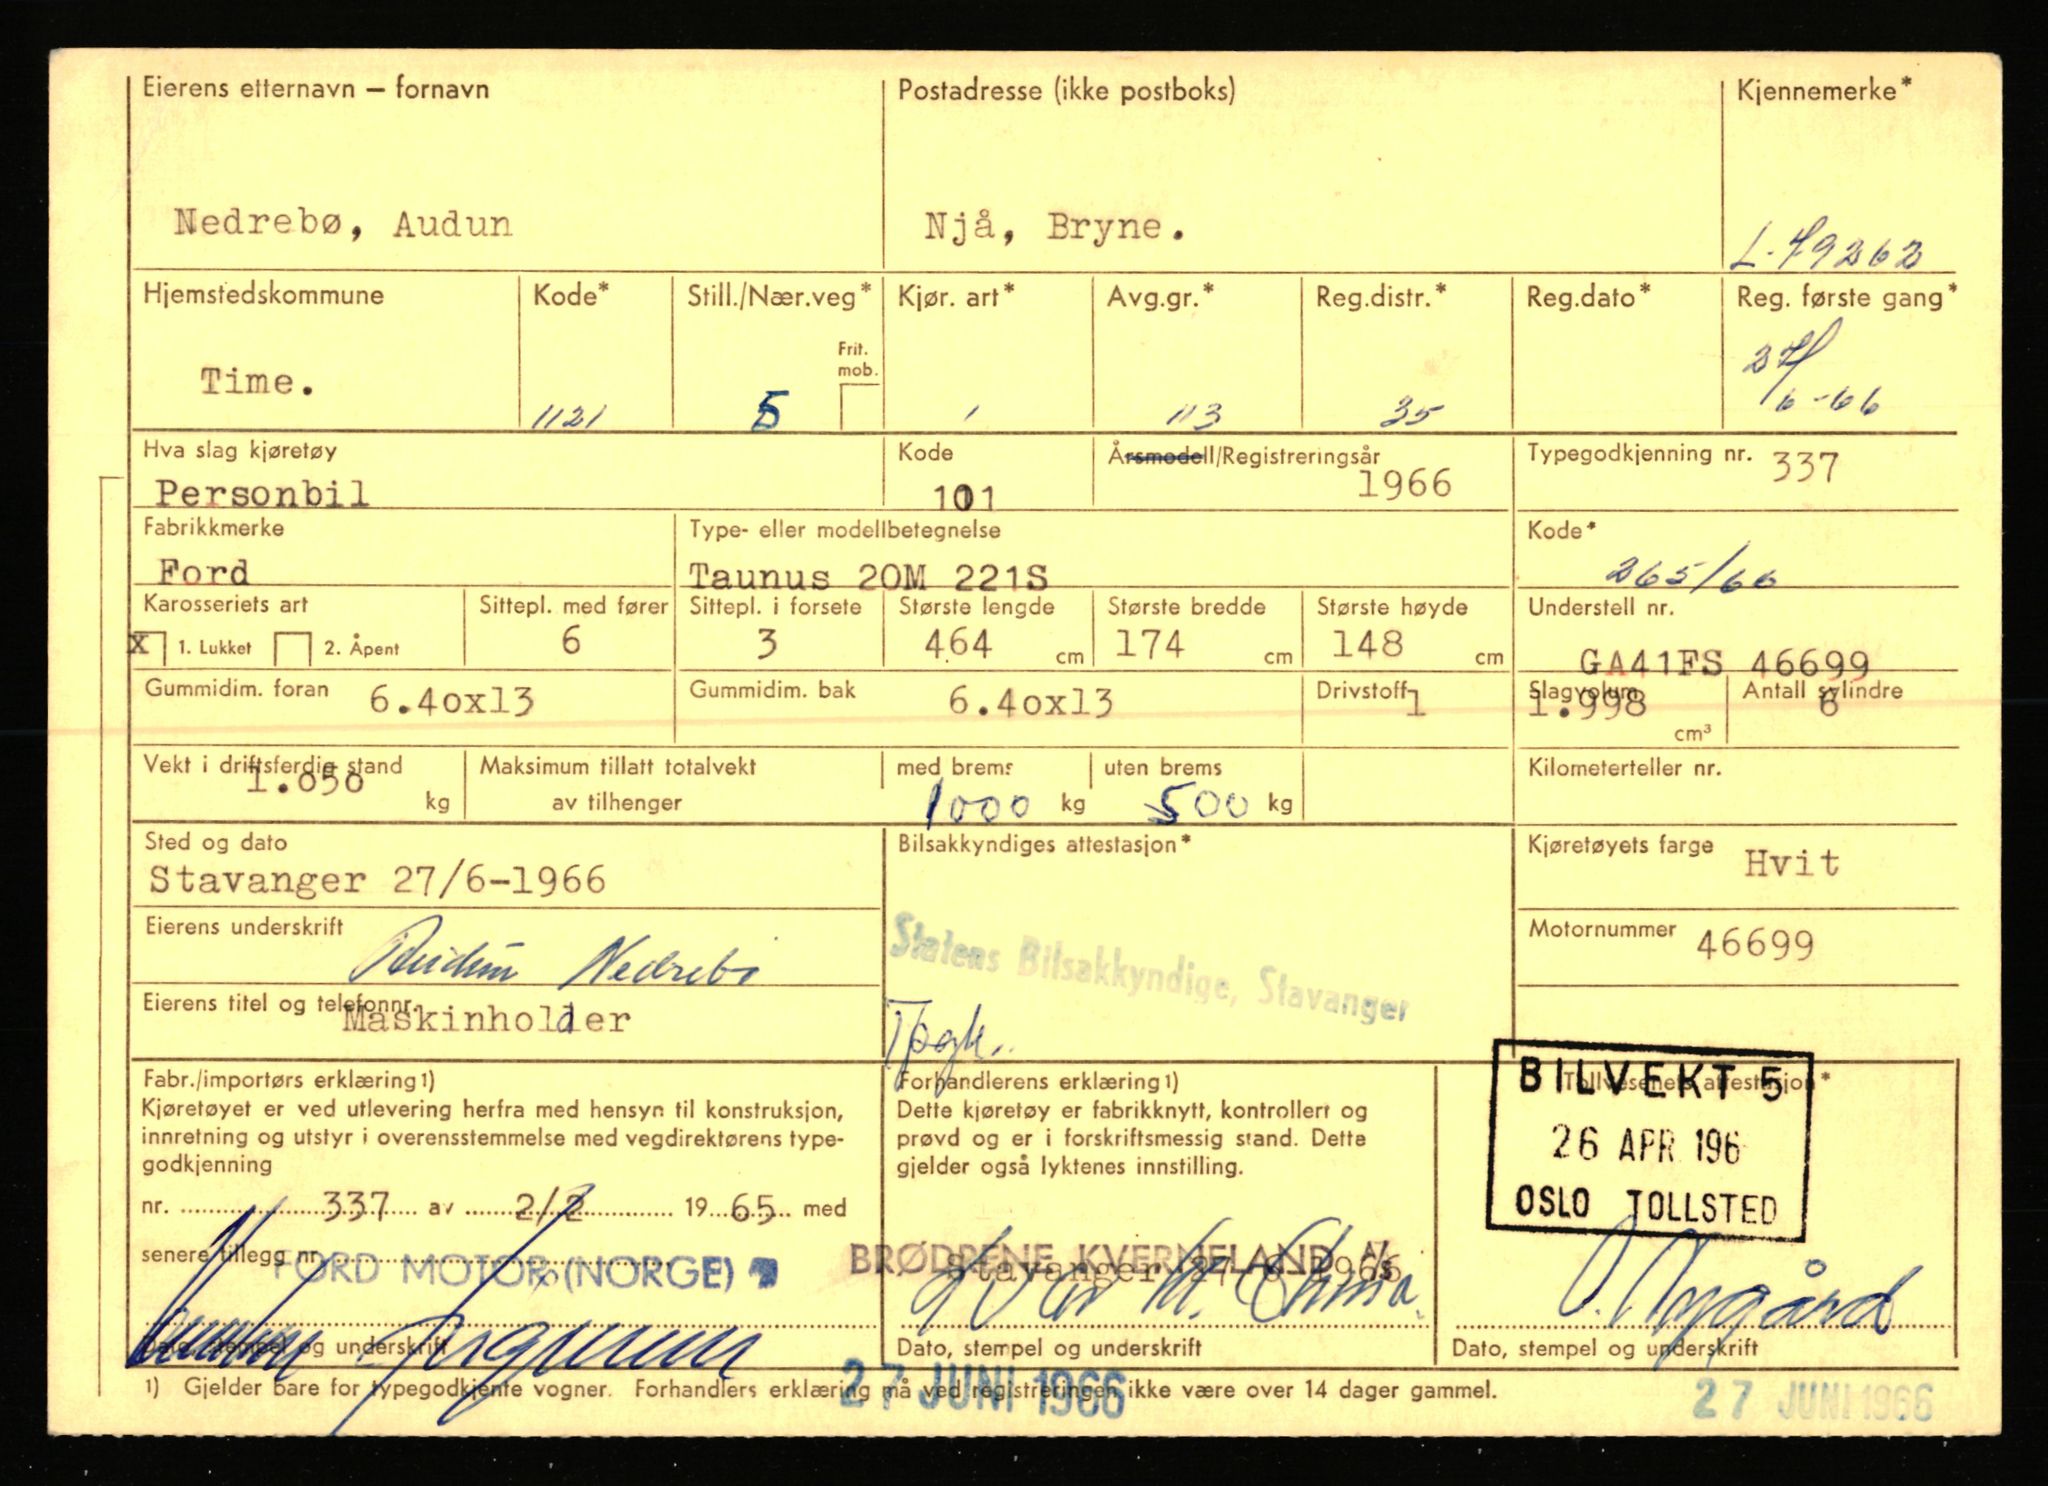 Eierens etternavn — fornavn
Postadresse (ikke postboks)
Kjennemerke*
Nedrebø, Audun
Njå, Bryne.
L-79262
Hjemstedskommune
Kode*
Still./Nær.veg*
Kjør. art*
Avg.gr.*
Reg.distr.*
Reg.dato*
Reg. første gang*
Frit. mob.
Time.
1121
5
1
113
35
27/6-66
Hva slag kjøretøy
Kode
Årsmodell/Registreringsår
Typegodkjenning nr. 337
Personbil
101
1966
Fabrikkmerke
Type- eller modellbetegnelse
Kode*
Ford
Taunus 20M 221S
265/66
Karosseriets art
Sittepl. med fører
Sittepl. i forsete
Største lengde
Største bredde
Største høyde
Understell nr.
X 1. Lukket 2. Åpent
6
3
464 cm
174 cm
148 cm
GA41FS 46699
Gummidim. foran 6.40x13
Gummidim. bak 6.40x13
Drivstoff 1
Slagvolum 1.998 cm³
Antall sylindre 6
Vekt i driftsferdig stand 1.050 kg
Maksimum tillatt totalvekt av tilhenger
med brems 1000 kg
uten brems 500 kg
Kilometerteller nr.
Sted og dato
Bilsakkyndiges attestasjon*
Kjøretøyets farge Hvit
Stavanger 27/6-1966
Eierens underskrift Audun Nedrebø
Statens Bilsakkyndige, Stavanger
Motornummer 46699
Eierens titel og telefonnr.
Maskinholder
Tpgk.
Fabr./importørs erklæring1)
Kjøretøyet er ved utlevering herfra med hensyn til konstruksjon,
innretning og utstyr i overensstemmelse med vegdirektørens type-
godkjenning
nr. 337 av 2/2 1965 med
senere tillegg nr.
FORD MOTOR (NORGE)
Dato, stempel og underskrift
Forhandlerens erklæring1)
Dette kjøretøy er fabrikknytt, kontrollert og
prøvd og er i forskriftsmessig stand. Dette
gjelder også lyktenes innstilling.
BRØDRENE KVERNELAND A/S
Stavanger 27 6 1966
Dato, stempel og underskrift
Tollvesenets attestasjon*
BILVEKT 5
26 APR 196
OSLO TOLLSTED
Nygård
Dato, stempel og underskrift
1) Gjelder bare for typegodkjente vogner. Forhandlers erklæring må ved registreringen ikke være over 14 dager gammel.
27 JUNI 1966
27 JUNI 1966